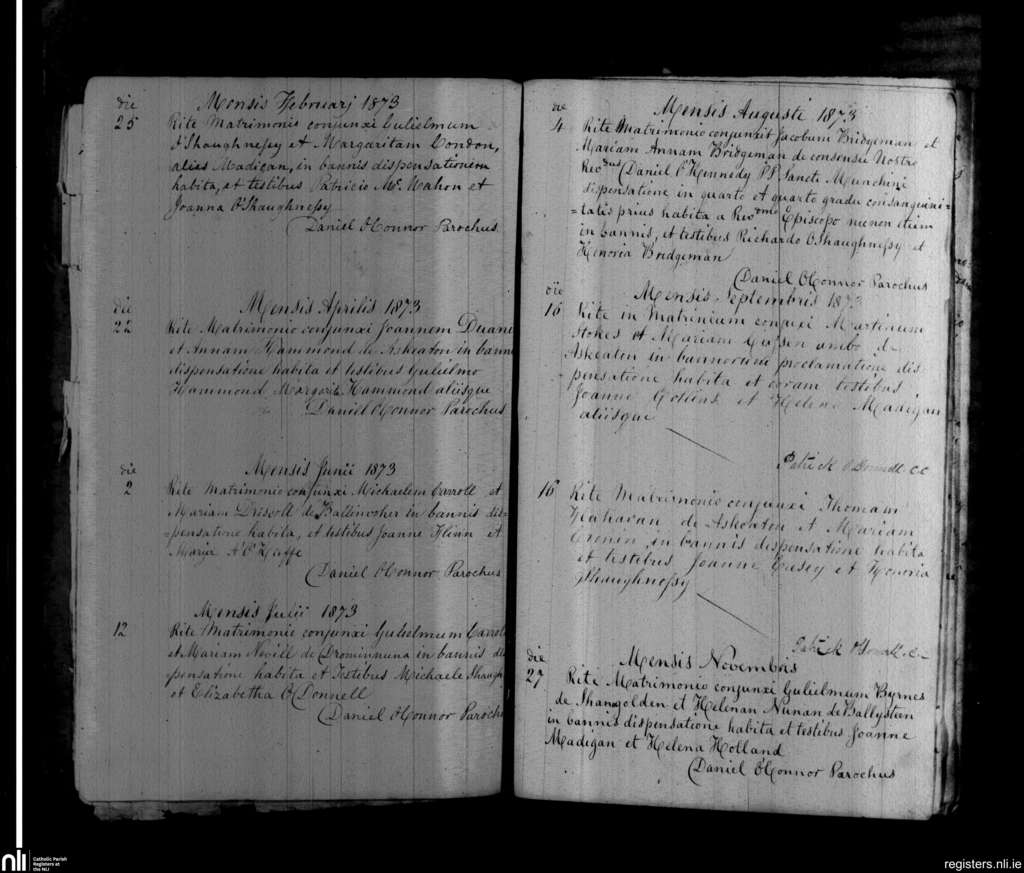 die Mensis Februarj 1873
25 Rite Matrimonio conjunxi Gulielmum
O'Shaughnessy et Margaritam Condon,
alias Madican, in bannis dispensationem
habita, et testibus Patricio Mc. Mahon et
Joanna O'Shaughnessy
Daniel O'Connor Parochus
die Mensis Aprilis 1873
22 Rite Matrimonio conjunxi Joannem Duane
et Annam Hammond de Askeaton in bann
dispensatione habita et testibus Gulielmo
Hammond Margarit Hammond aliisque
Daniel O'Connor Parochus
die Mensis Junii 1873
2 Rite Matrimonio conjunxi Michaelem Carroll et
Mariam Driscoll de Ballinvoher in bannis dis=
=pensatione habita, et testibus Joanne Flinn et
Marije A O'Keeffe
Daniel O'Connor Parochus
Mensis Julii 1873
12 Rite Matrimonio conjunxi Gulielmum Carroll
et Mariam Nevill de in bannis dis
pensatione habita et Testibus Michaele Shaugh
et Elizabetha O'Donnell
Daniel O'Connor Parochu
die Mensis Augusti 1873
4 Rite Matrimonio conjunxit Jacobum Bridgeman et
Mariam Annam Bridgeman de consensu Nostro
Revdus Daniel O'Kennedy P.P. Sancti Munchini
dispensatione in quarto et quarto gradu consanguini=
=tatis prius habita a Revmo Episcopo necnon etiam
in bannis, et testibus Richardo O'Shaughnessy et
Honoria Bridgeman
Daniel O'Connor Parochus
die Mensis Septembris 1873
16 Rite in Matrimonium conjuxi Martinum
Stokes et Mariam ambo de
Askeaton in bannorum proclamatione dis
pensatione habita et coram testibus
Joanne et Helena Madigan
aliisque
Patrick O'Donnell c.c
16 Rite Matrimonio conjunxi Thomam
de Askeaton et Mariam
Cronin in bannis dispensatione habita
et testibus Joanne Casey et Honoria
Shaughnessy
Patrick O'Donnell c.c
die Mensis Novembris
27 Rite Matrimonio conjunxi Gulielmum Byrnes
de Shangolden et Helenan Nunan de Ballysteen
in bannis dispensatione habita et testibus Joanne
Madigan et Helena Holland
Daniel O'Connor Parochus
nli Catholic Parish
Registers at
the NLI
registers.nli.ie